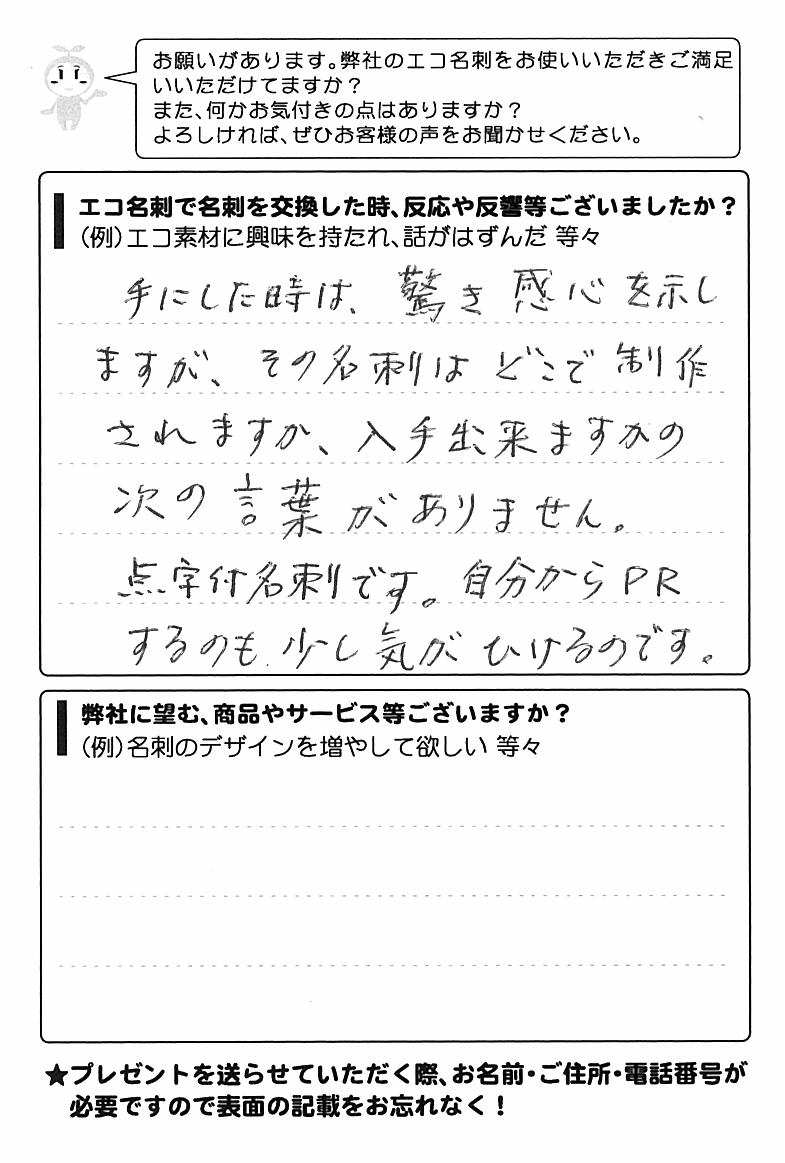 お願いがあります。弊社のエコ名刺をお使いいただきご満足
いいただけてますか？
また、何かお気付きの点はありますか？
よろしければ、ぜひお客様の声をお聞かせください。
エコ名刺で名刺を交換した時、反応や反響等ございましたか？
（例）エコ素材に興味を持たれ、話がはずんだ 等々
手にした時は、驚き感心を示し
ますが、その名刺はどこで制作
されますか、入手出来ますかの
次の言葉がありません。
点字付名刺です。自分からPR
するのも少し気がひけるのです。
弊社に望む、商品やサービス等ございますか？
（例）名刺のデザインを増やして欲しい 等々
★プレゼントを送らせていただく際、お名前・ご住所・電話番号が
必要ですので表面の記載をお忘れなく！